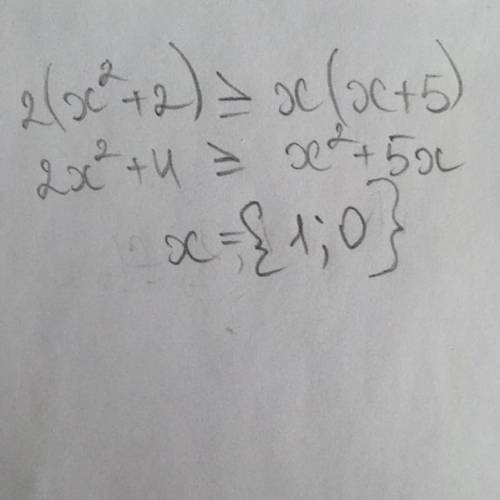 2(x²+2) ≥ x(x+5)
2x²+4 ≥ x²+5x
x={1;0}